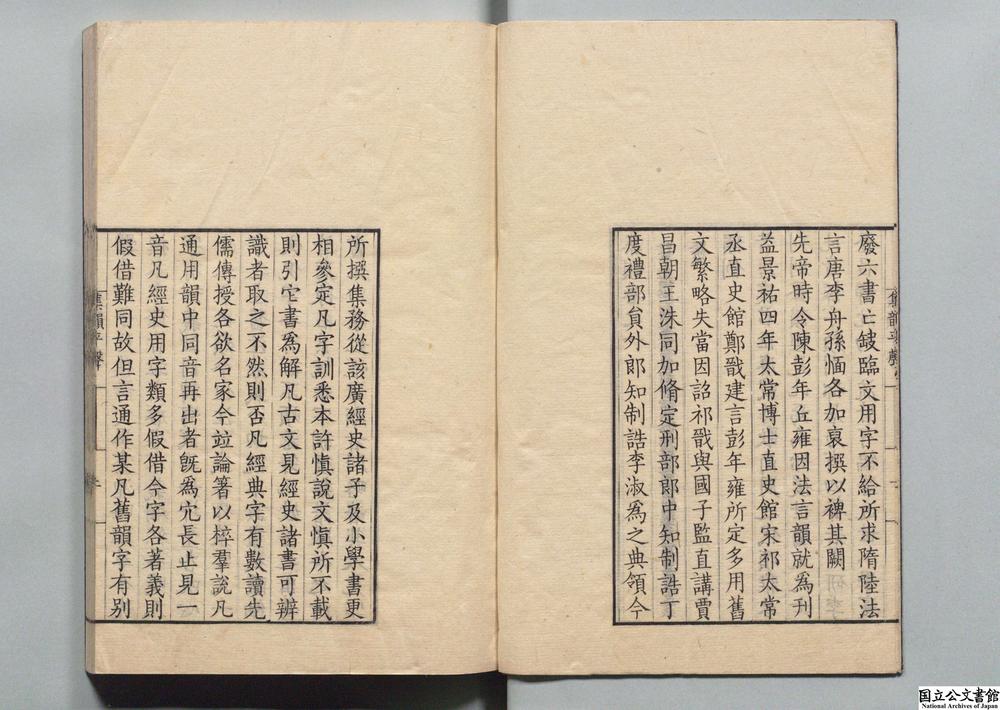 廢六書亡缺臨文用字不給所求隋陸法
言唐李舟孫愐各加裒撰以裨其闕
先帝時令陳彭年丘雍因法言韻就為刊
益景祐四年太常博士直史館宋祁太常
丞直史館鄭戩建言彭年雍所定多用舊
文繁略失當因詔祁戩與國子監直講賈
昌朝王洙同加脩定刑部郎中知制誥丁
度禮部員外郎知制誥李淑為之典領今
所撰集務從該廣經史諸子及小學書更
相參定凡字訓悉本許慎說文慎所不載
則引它書為解凡古文見經史諸書可辨
識者取之不然則否凡經典字有數讀先
儒傳授各欲名家今竝論著以稡羣說凡
通用韻中同音再出者旣為宂長止見一
音凡經史用字類多假借今字各著義則
假借難同故但言通作某凡舊韻字有別
集韻平聲
集韻平聲
国立公文書館
National Archives of Japan